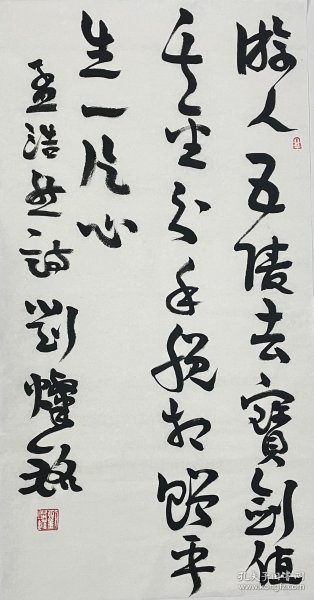 游人五陵去寶劍值
千金分手脱相贈平
生一片心
孟浩然詩劉燦銘